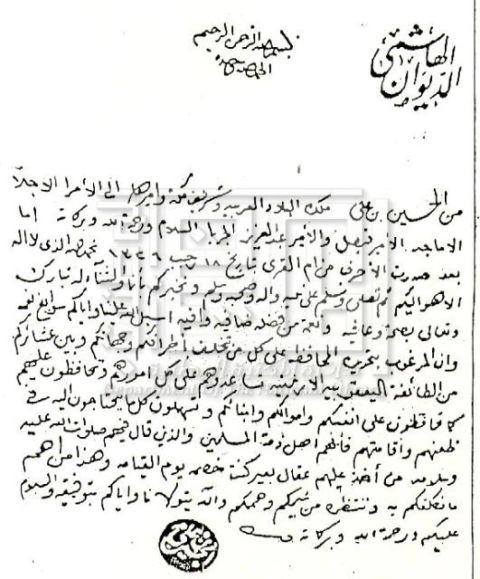 الديوان الهاشمي
بسم الله الرحمن الرحيم
الحمد لله وحده
من الحسين بن علي ملك البلاد العربية وشريف مكة واميرها الى الأمرا الأجلا
الاماجد الأمير فيصل والأمير عبد العزيز الجربا السلام ورحمة الله وبركاته اما
بعد صدرت الأحرف من ام القرى بتاريخ ١٨ رجب ١٣٣٦ نحمد الله الذي لا اله
الا هو اليكم ونصلي ونسلم على نبيه واله وصحبه وسلم ونخبركم بأنا والثنآ له تبارك
وتعالى بصحة وعافية ونعم من فضله ضافيه وافيه اسبل الله علينا واياكم سوابغ نعمه
وان المرغوب بتحريره المحافظة على كل من تخلف بأطرافكم وجهاتكم وبين عشائركم
من الطائفة اليعقوبيه الارمنيه تساعدوهم على كل امورهم وتحافظون عليهم
كما تحافظون على انفسكم واموالكم وابنائكم وتسهلون كل ما يحتاجون اليه في
ظعنهم واقامتهم فانهم اهل ذمة المسلمين والذين قال فيهم صلوات الله عليه
وسلامه من أخذ عليهم عقال بعير كنت خصمه يوم القيامه وهذا من اهم
ما نكلفكم به وننتظره من شيمكم وهممكم والله يتولانا واياكم بتوفيقه والسلام
عليكم ورحمة الله وبركاته